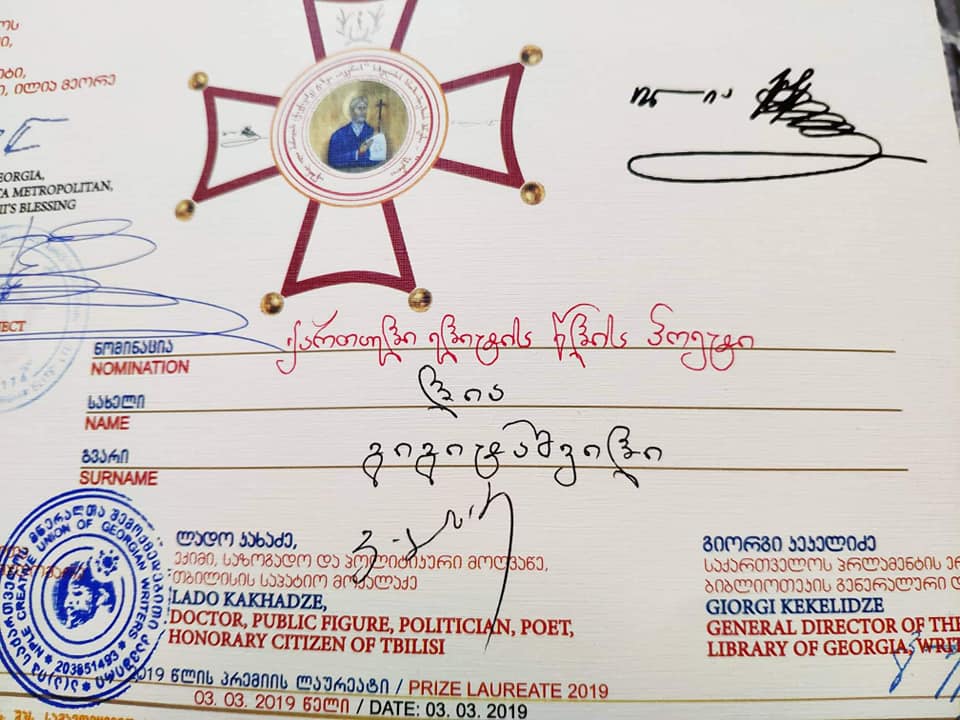 ᲘᲚᲘᲐ ᲛᲔᲝᲠᲔ
EORGIA,
TA METROPOLITAN,
II'S BLESSING
JECT
ᲜᲝᲛᲘᲜᲐᲪᲘᲐ
NOMINATION
ქართული ლექსის წლის პოეტი
ᲡᲐᲮᲔᲚᲘ
NAME
ლია
ᲒᲕᲐᲠᲘ
SURNAME
გიგიტაშვილი
ᲚᲐᲓᲝ ᲙᲐᲮᲐᲫᲔ,
ᲔᲥᲘᲛᲘ, ᲡᲐᲖᲝᲒᲐᲓᲝ ᲓᲐ ᲞᲝᲚᲘᲢᲘᲙᲣᲠᲘ ᲛᲝᲦᲕᲐᲬᲔ,
ᲗᲑᲘᲚᲘᲡᲘᲡ ᲡᲐᲞᲐᲢᲘᲝ ᲛᲝᲥᲐᲚᲐᲥᲔ
LADO KAKHADZE,
DOCTOR, PUBLIC FIGURE, POLITICIAN, POET,
HONORARY CITIZEN OF TBILISI
ᲒᲘᲝᲠᲒᲘ ᲙᲔᲙᲔᲚᲘᲫᲔ
ᲡᲐᲥᲐᲠᲗᲕᲔᲚᲝᲡ ᲞᲐᲠᲚᲐᲛᲔᲜᲢᲘᲡ ᲔᲠ
ᲑᲘᲑᲚᲘᲝᲗᲔᲙᲘᲡ ᲒᲔᲜᲔᲠᲐᲚᲣᲠᲘ Დ
GIORGI KEKELIDZE
GENERAL DIRECTOR OF THE
LIBRARY OF GEORGIA, WRIT
NPLE CREATIVE UNION OF GEORGIAN WRITERS
203851493
2019 ᲬᲚᲘᲡ ᲞᲠᲔᲛᲘᲘᲡ ᲚᲐᲣᲠᲔᲐᲢᲘ / PRIZE LAUREATE 2019
03. 03. 2019 ᲬᲔᲚᲘ / DATE: 03. 03. 2019